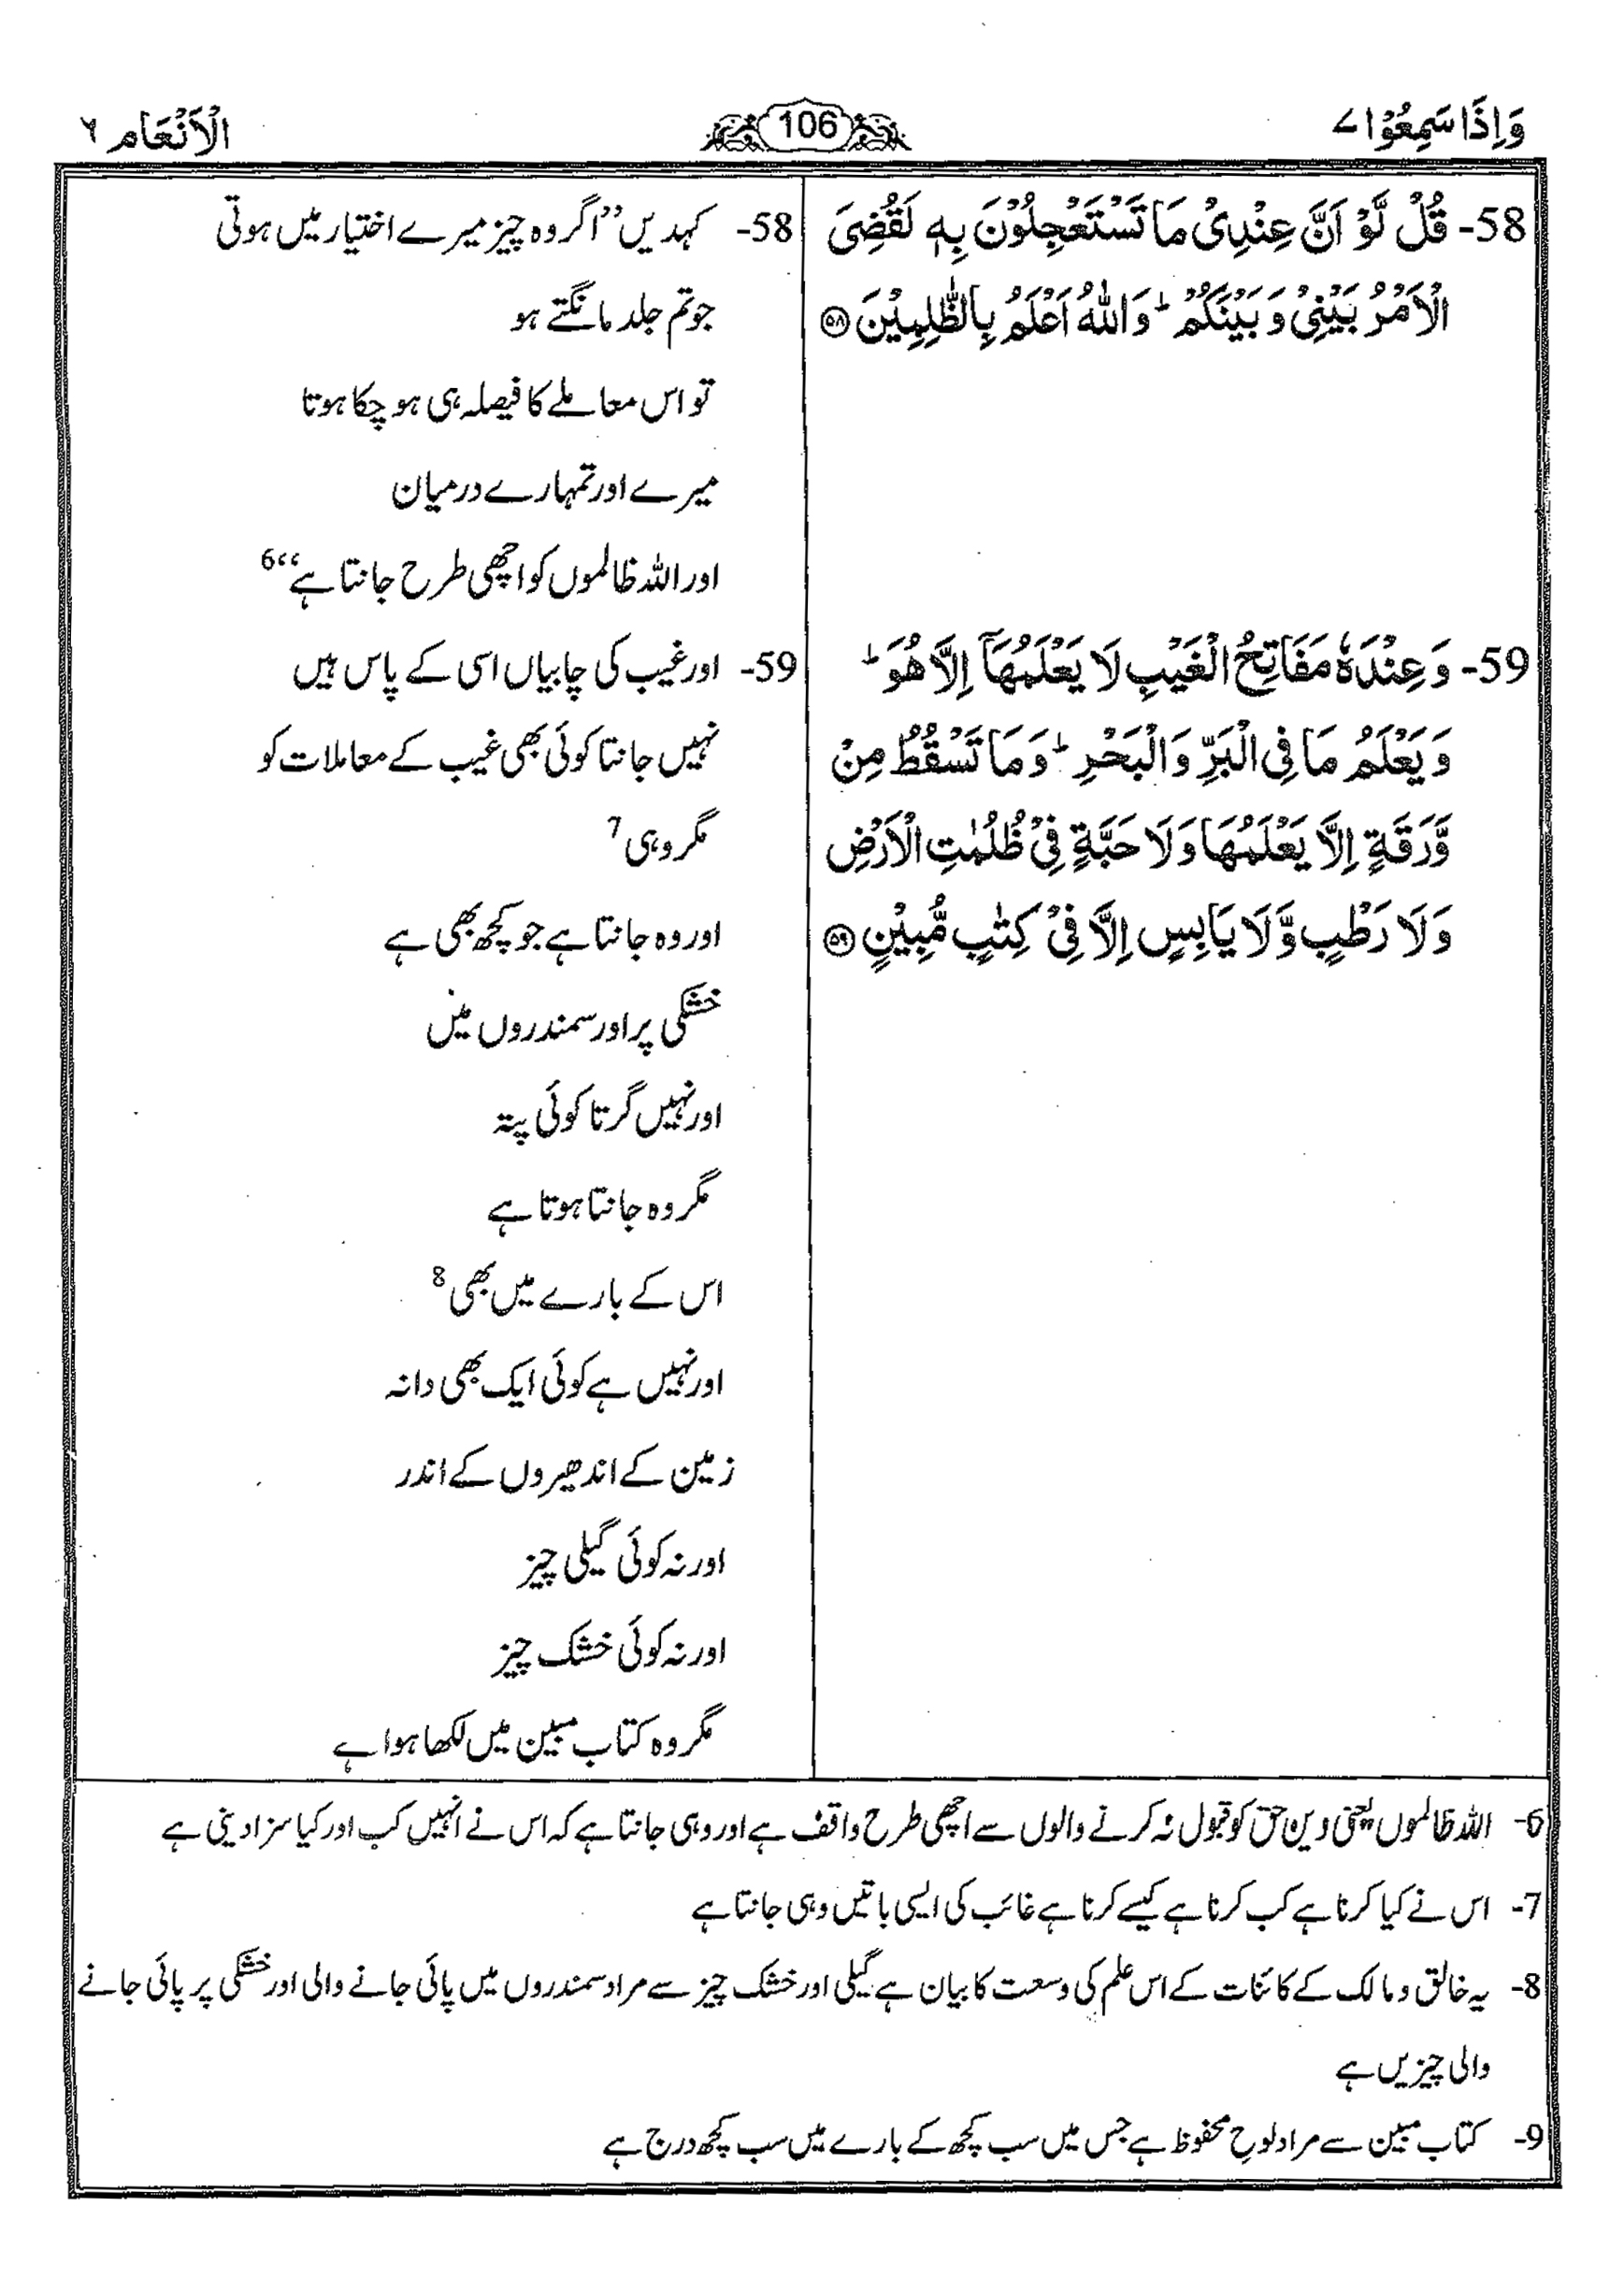 وَاِذَا سَمِعُوْا ۷
106
الْاَنْعَام ٦
58- قُلْ لَّوْ اَنَّ عِنْدِیْ مَا تَسْتَعْجِلُوْنَ بِهٖ لَقُضِیَ
الْاَمْرُ بَیْنِیْ وَ بَیْنَكُمْ ؕ وَاللّٰهُ اَعْلَمُ بِالظّٰلِمِیْنَ ﴿۵۸﴾
59- وَ عِنْدَهٗ مَفَاتِحُ الْغَیْبِ لَا یَعْلَمُهَاۤ اِلَّا هُوَ ؕ
وَ یَعْلَمُ مَا فِی الْبَرِّ وَالْبَحْرِ ؕ وَ مَا تَسْقُطُ مِنْ
وَّرَقَةٍ اِلَّا یَعْلَمُهَا وَلَا حَبَّةٍ فِیْ ظُلُمٰتِ الْاَرْضِ
وَلَا رَطْبٍ وَّلَا یَابِسٍ اِلَّا فِیْ كِتٰبٍ مُّبِیْنٍ ﴿۵۹﴾
58- کہدیں ”اگر وہ چیز میرے اختیار میں ہوتی
جو تم جلد مانگتے ہو
تو اس معاملے کا فیصلہ ہی ہو چکا ہوتا
میرے اور تمہارے درمیان
اور اللہ ظالموں کو اچھی طرح جانتا ہے“6
59- اور غیب کی چابیاں اسی کے پاس ہیں
نہیں جانتا کوئی بھی غیب کے معاملات کو
مگر وہی 7
اور وہ جانتا ہے جو کچھ بھی ہے
خشکی پر اور سمندروں میں
اور نہیں گرتا کوئی پتہ
مگر وہ جانتا ہوتا ہے
اس کے بارے میں بھی 8
اور نہیں ہے کوئی ایک بھی دانہ
زمین کے اندھیروں کے اندر
اور نہ کوئی گیلی چیز
اور نہ کوئی خشک چیز
مگر وہ کتاب مبین میں لکھا ہوا ہے
6- اللہ ظالموں یعنی دین حق کو قبول نہ کرنے والوں سے اچھی طرح واقف ہے اور وہی جانتا ہے کہ اس نے انہیں کب اور کیا سزا دینی ہے
7- اس نے کیا کرنا ہے کب کرنا ہے کیسے کرنا ہے غائب کی ایسی باتیں وہی جانتا ہے
8- یہ خالق و مالک کے کائنات کے اس علم کی وسعت کا بیان ہے گیلی اور خشک چیز سے مراد سمندروں میں پائی جانے والی اور خشکی پر پائی جانے
والی چیزیں ہے
9- کتاب مبین سے مراد لوح محفوظ ہے جس میں سب کچھ کے بارے میں سب کچھ درج ہے